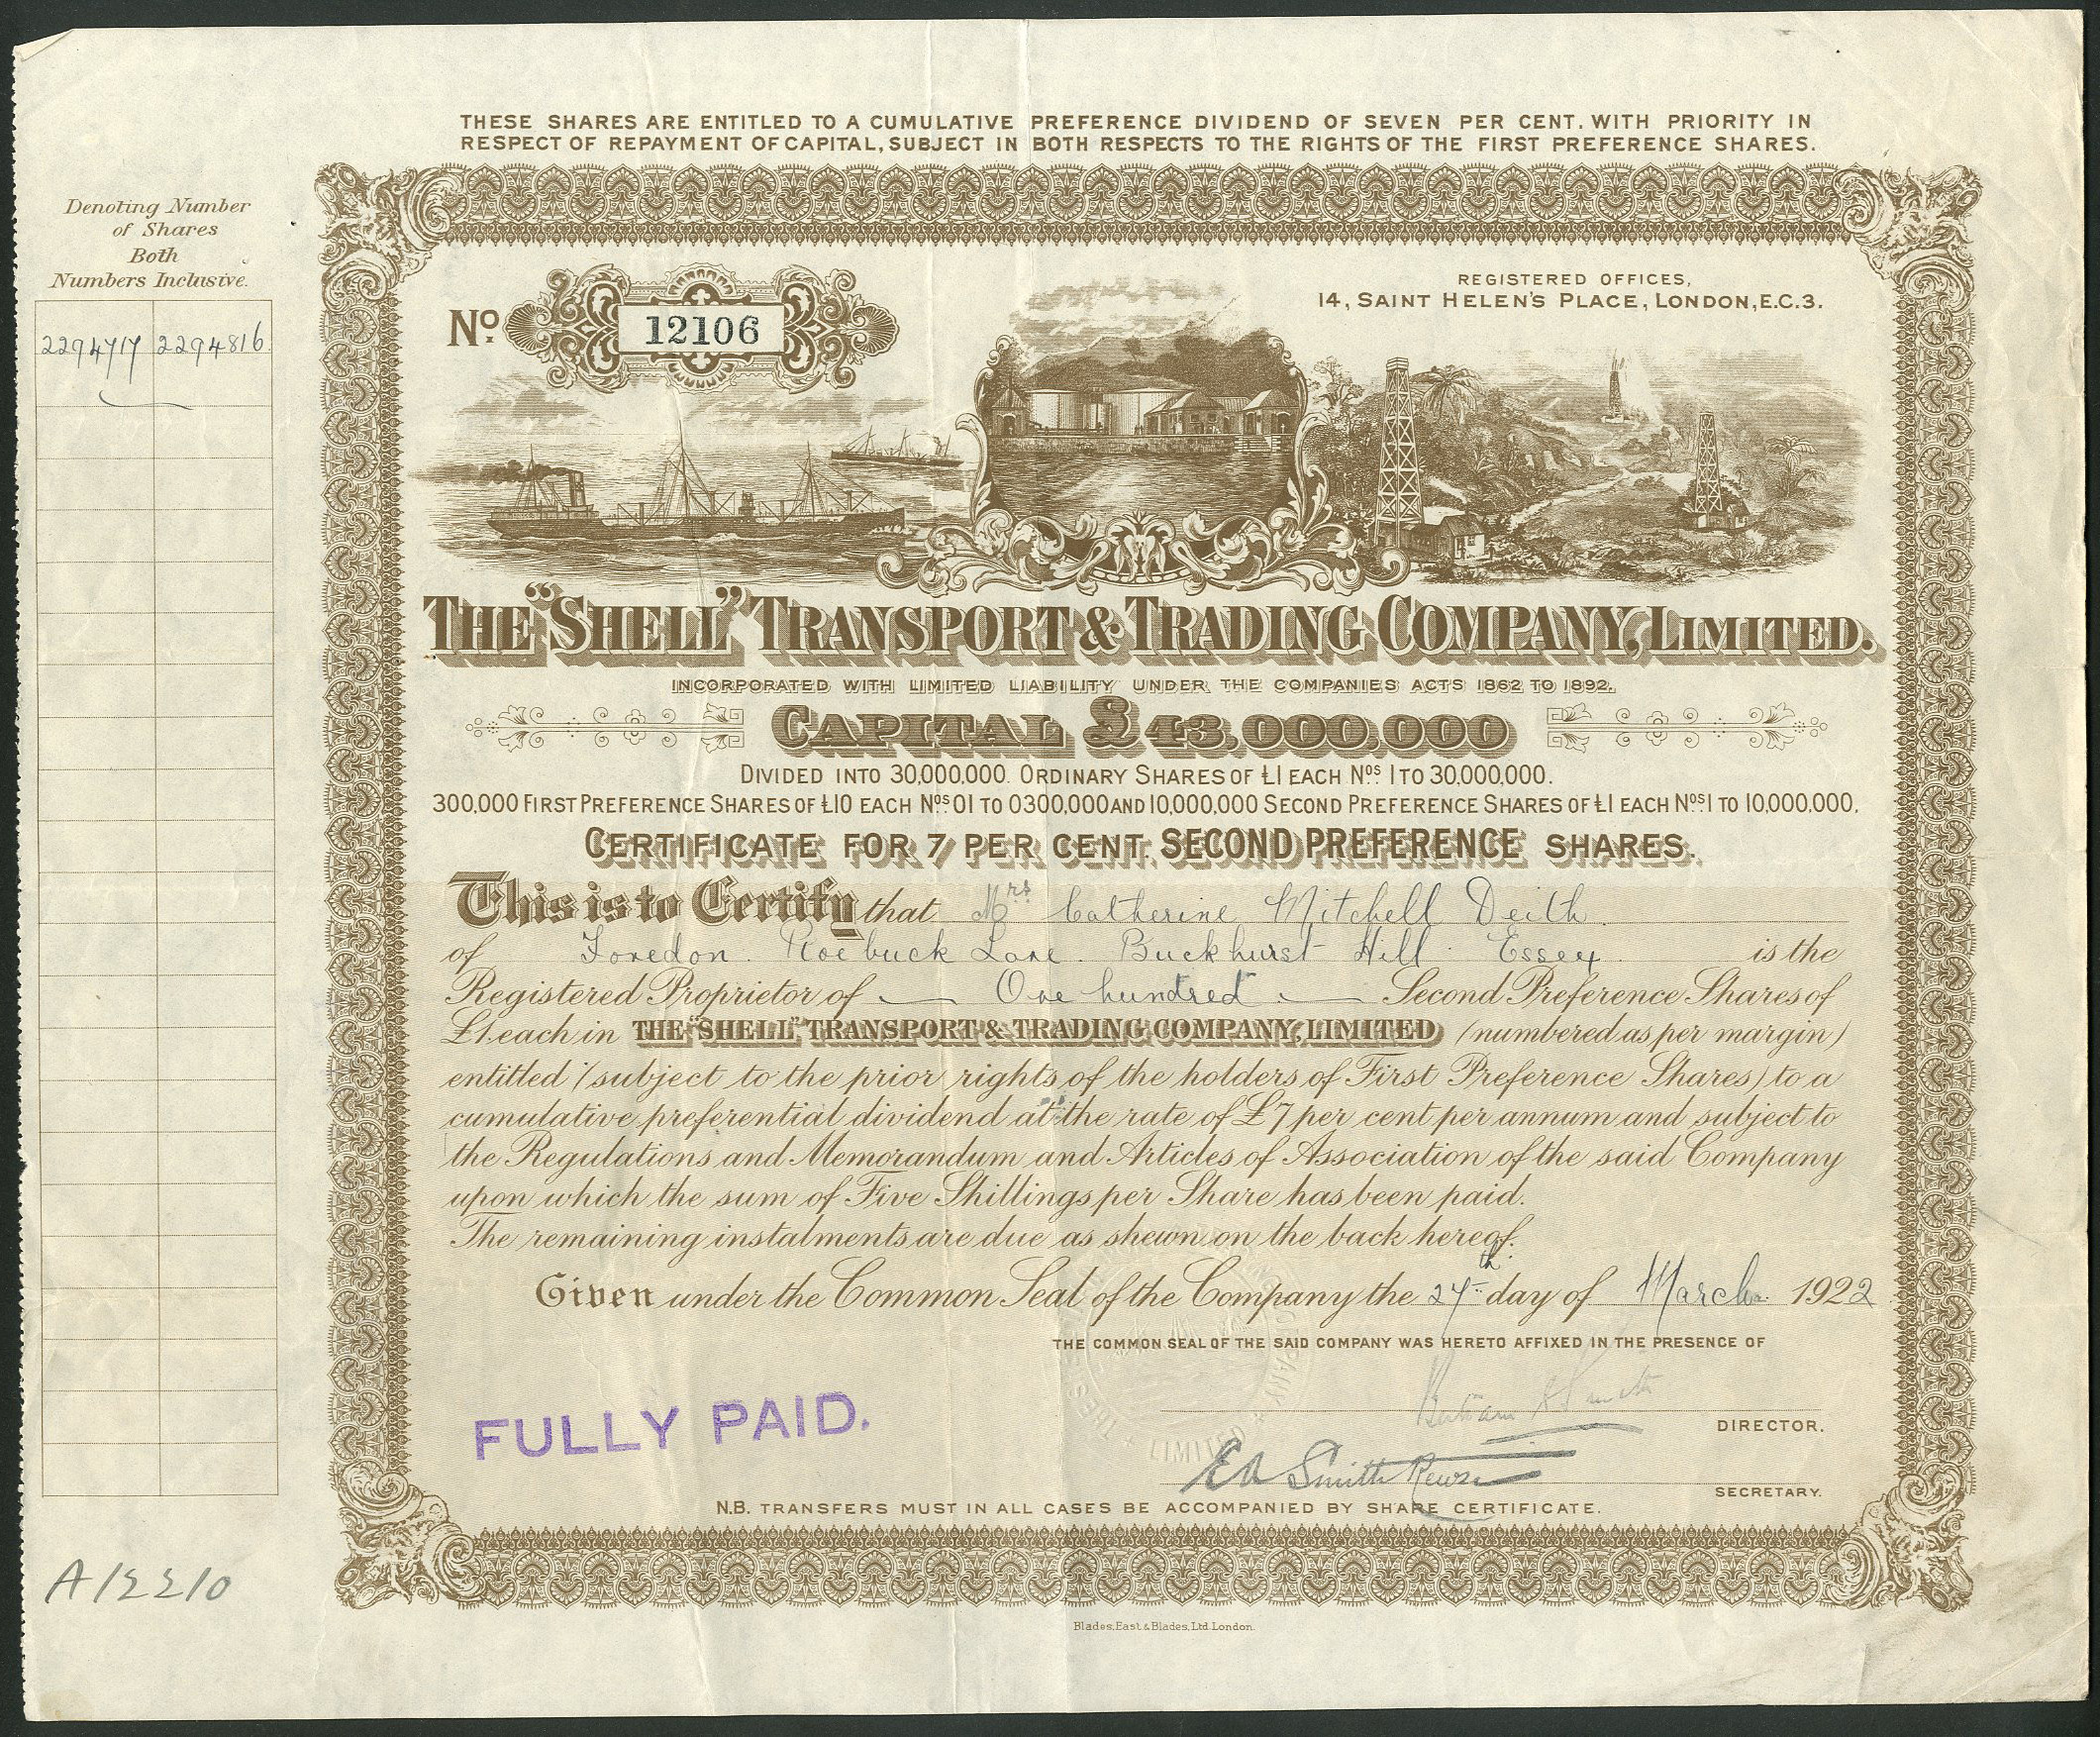 THESE SHARES ARE ENTITLED TO A CUMULATIVE PREFERENCE DIVIDEND OF SEVEN PER CENT. WITH PRIORITY IN
RESPECT OF REPAYMENT OF CAPITAL, SUBJECT IN BOTH RESPECTS TO THE RIGHTS OF THE FIRST PREFERENCE SHARES.
Denoting Number
of Shares
Both
Numbers Inclusive.
2294717 2294816
No. 12106
REGISTERED OFFICES,
14, SAINT HELEN'S PLACE, LONDON, E.C.3.
THE "SHELL" TRANSPORT & TRADING COMPANY, LIMITED.
INCORPORATED WITH LIMITED LIABILITY UNDER THE COMPANIES ACTS 1862 TO 1892.
CAPITAL £43,000,000
DIVIDED INTO 30,000,000. ORDINARY SHARES OF £1 EACH Nos. 1 TO 30,000,000.
300,000 FIRST PREFERENCE SHARES OF £10 EACH Nos. 01 TO 0300,000 AND 10,000,000 SECOND PREFERENCE SHARES OF £1 EACH Nos. 1 TO 10,000,000.
CERTIFICATE FOR 7 PER CENT. SECOND PREFERENCE SHARES.
This is to Certify that Mrs Catherine Mitchell Deith
of Roebuck Lane. Buckhurst Hill Essex. is the
Registered Proprietor of One hundred Second Preference Shares of
£1. each in THE "SHELL" TRANSPORT & TRADING COMPANY, LIMITED (numbered as per margin)
entitled (subject to the prior rights of the holders of First Preference Shares) to a
cumulative preferential dividend at the rate of £7 per cent per annum and subject to
the Regulations and Memorandum and Articles of Association of the said Company
upon which the sum of Five Shillings per Share has been paid.
The remaining instalments are due as shewn on the back hereof.
Given under the Common Seal of the Company the 24th day of March 1922
THE COMMON SEAL OF THE SAID COMPANY WAS HERETO AFFIXED IN THE PRESENCE OF
DIRECTOR.
FULLY PAID.
SECRETARY.
N.B. TRANSFERS MUST IN ALL CASES BE ACCOMPANIED BY SHARE CERTIFICATE.
A12210
Blades, East & Blades, Ltd. London.